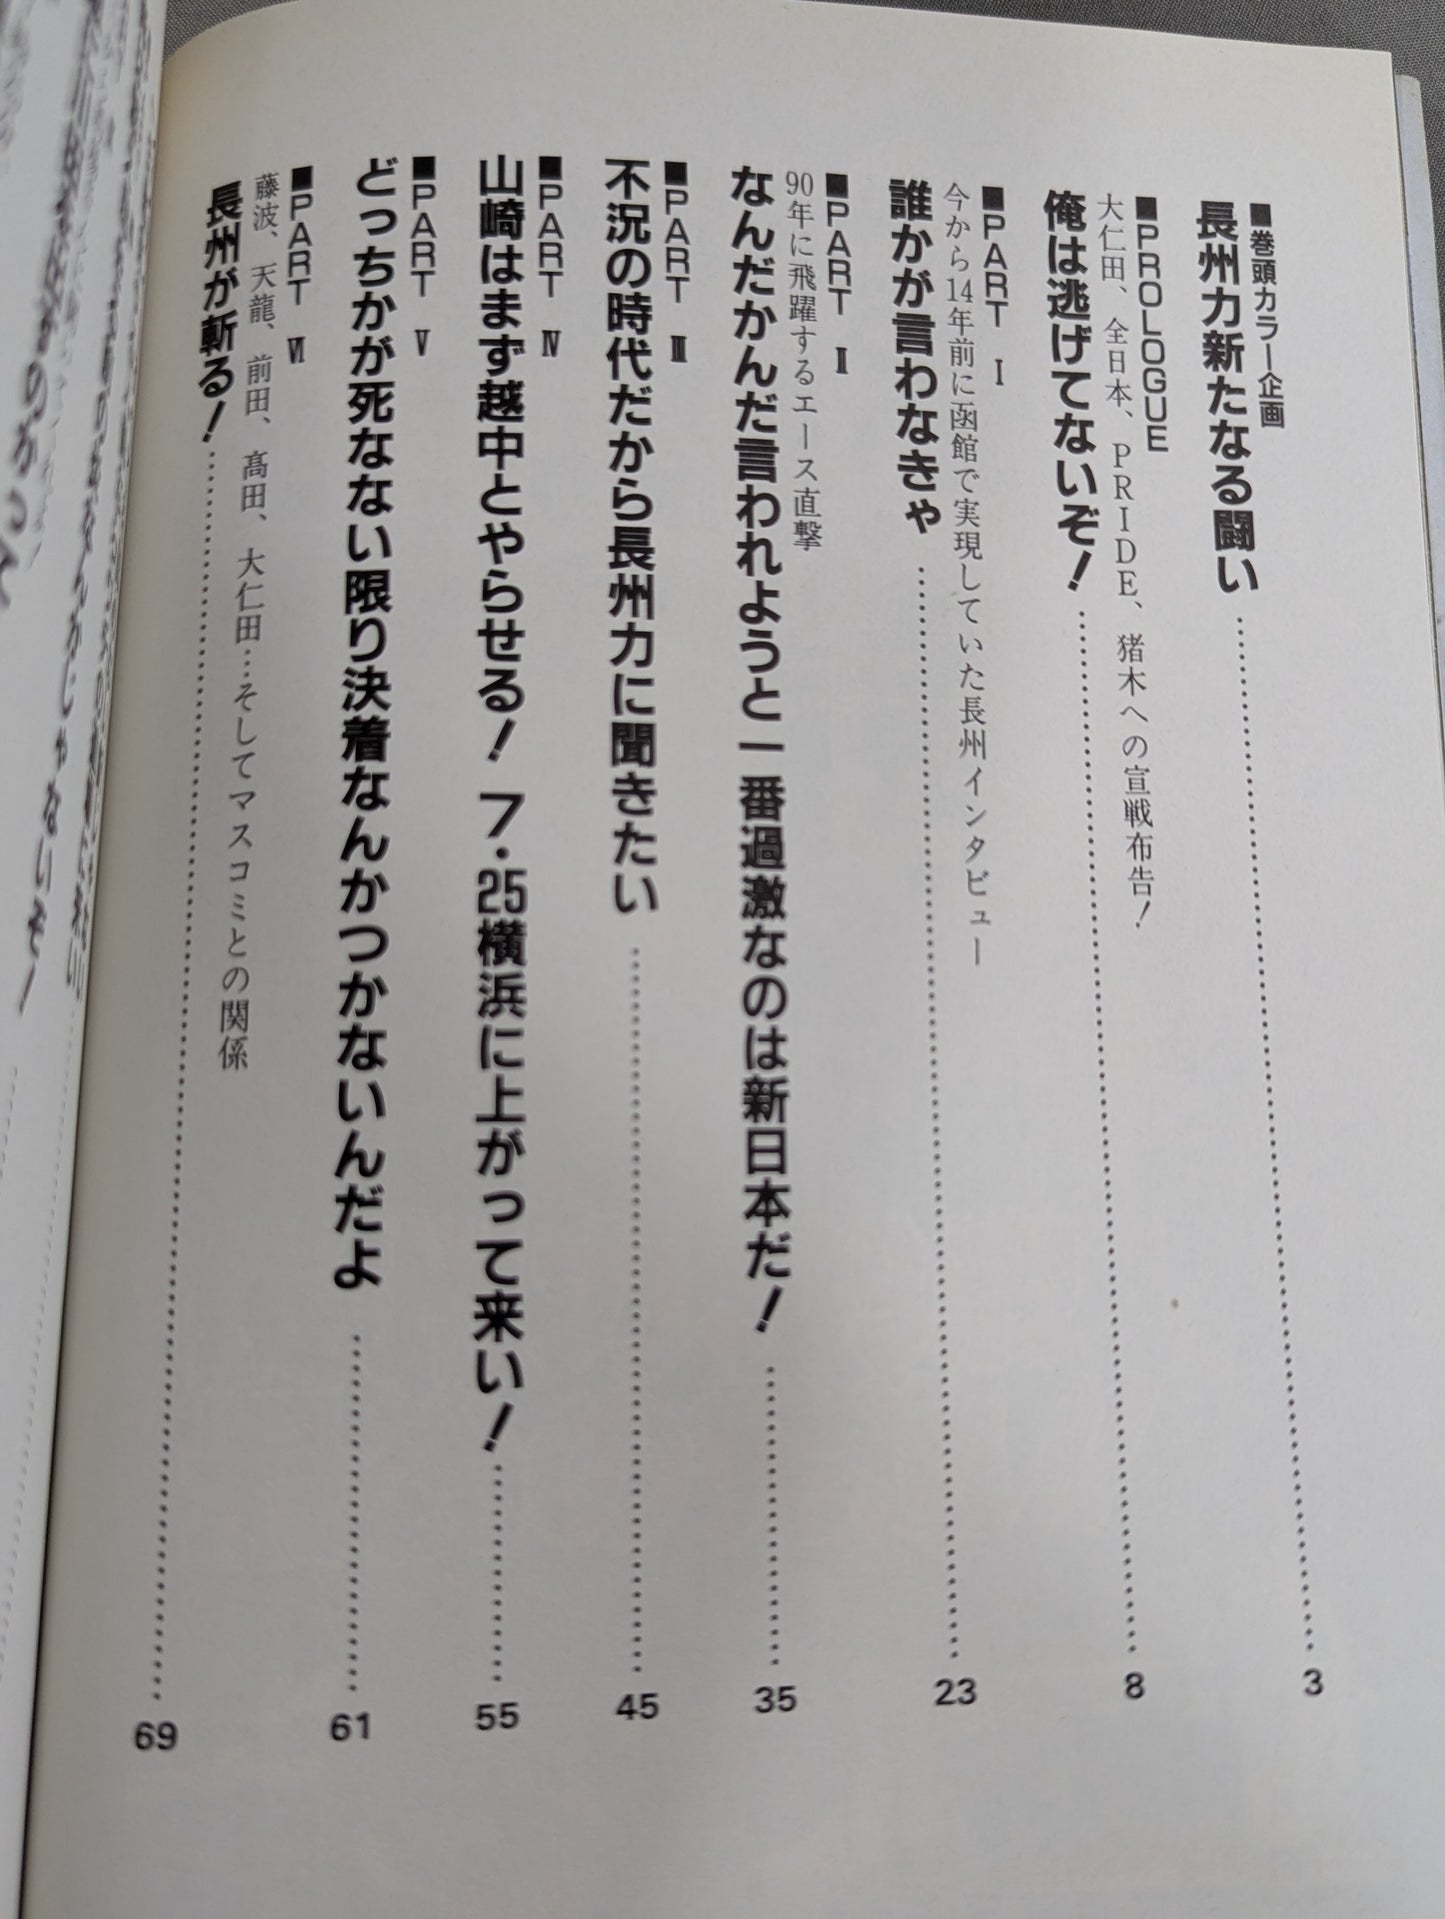 ■巻頭カラー企画
長州力新たなる闘い……3
■PROLOGUE
大仁田、全日本、PRIDE、猪木への宣戦布告！
俺は逃げてないぞ！……8
■PART Ⅰ
今から14年前に函館で実現していた長州インタビュー
誰かが言わなきゃ……23
■PART Ⅱ
90年に飛躍するエース直撃
なんだかんだ言われようと一番過激なのは新日本だ！……35
■PART Ⅲ
不況の時代だから長州力に聞きたい……45
■PART Ⅳ
山崎はまず越中とやらせる！7・25横浜に上がって来い！……55
■PART Ⅴ
どっちかが死なない限り決着なんかつかないんだよ……61
■PART Ⅵ
藤波、天龍、前田、髙田、大仁田…そしてマスコミとの関係
長州が斬る！……69